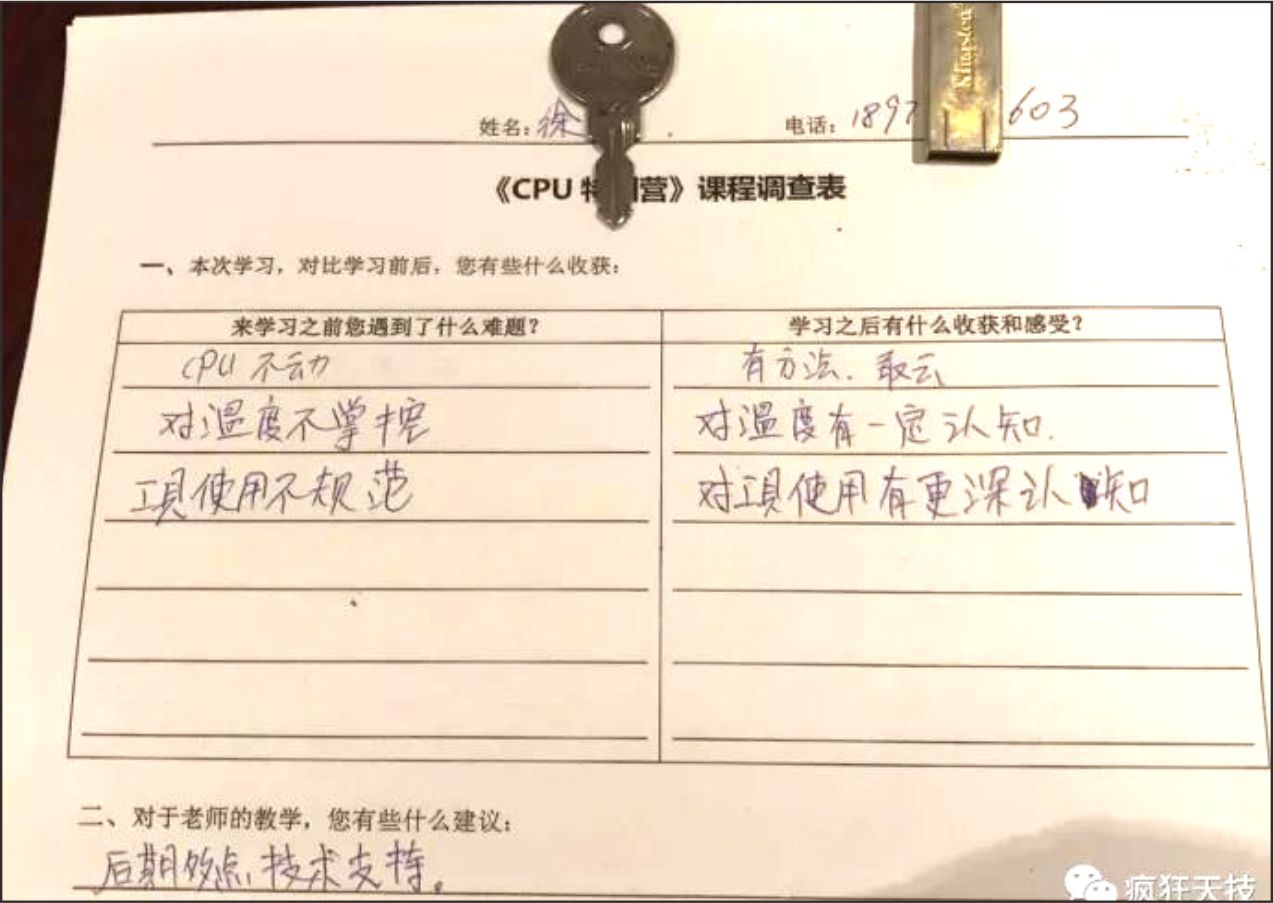 Kingston
姓名：徐 电话：1897 603
《CPU 特训营》课程调查表
一、本次学习，对比学习前后，您有些什么收获：
来学习之前您遇到了什么难题？ 学习之后有什么收获和感受？
CPU 不敢动 有方法．敢去
对温度不掌控 对温度有一定认知．
工具使用不规范 对工具使用有更深认知
二、对于老师的教学，您有些什么建议：
后期多点技术支持。
疯狂天技